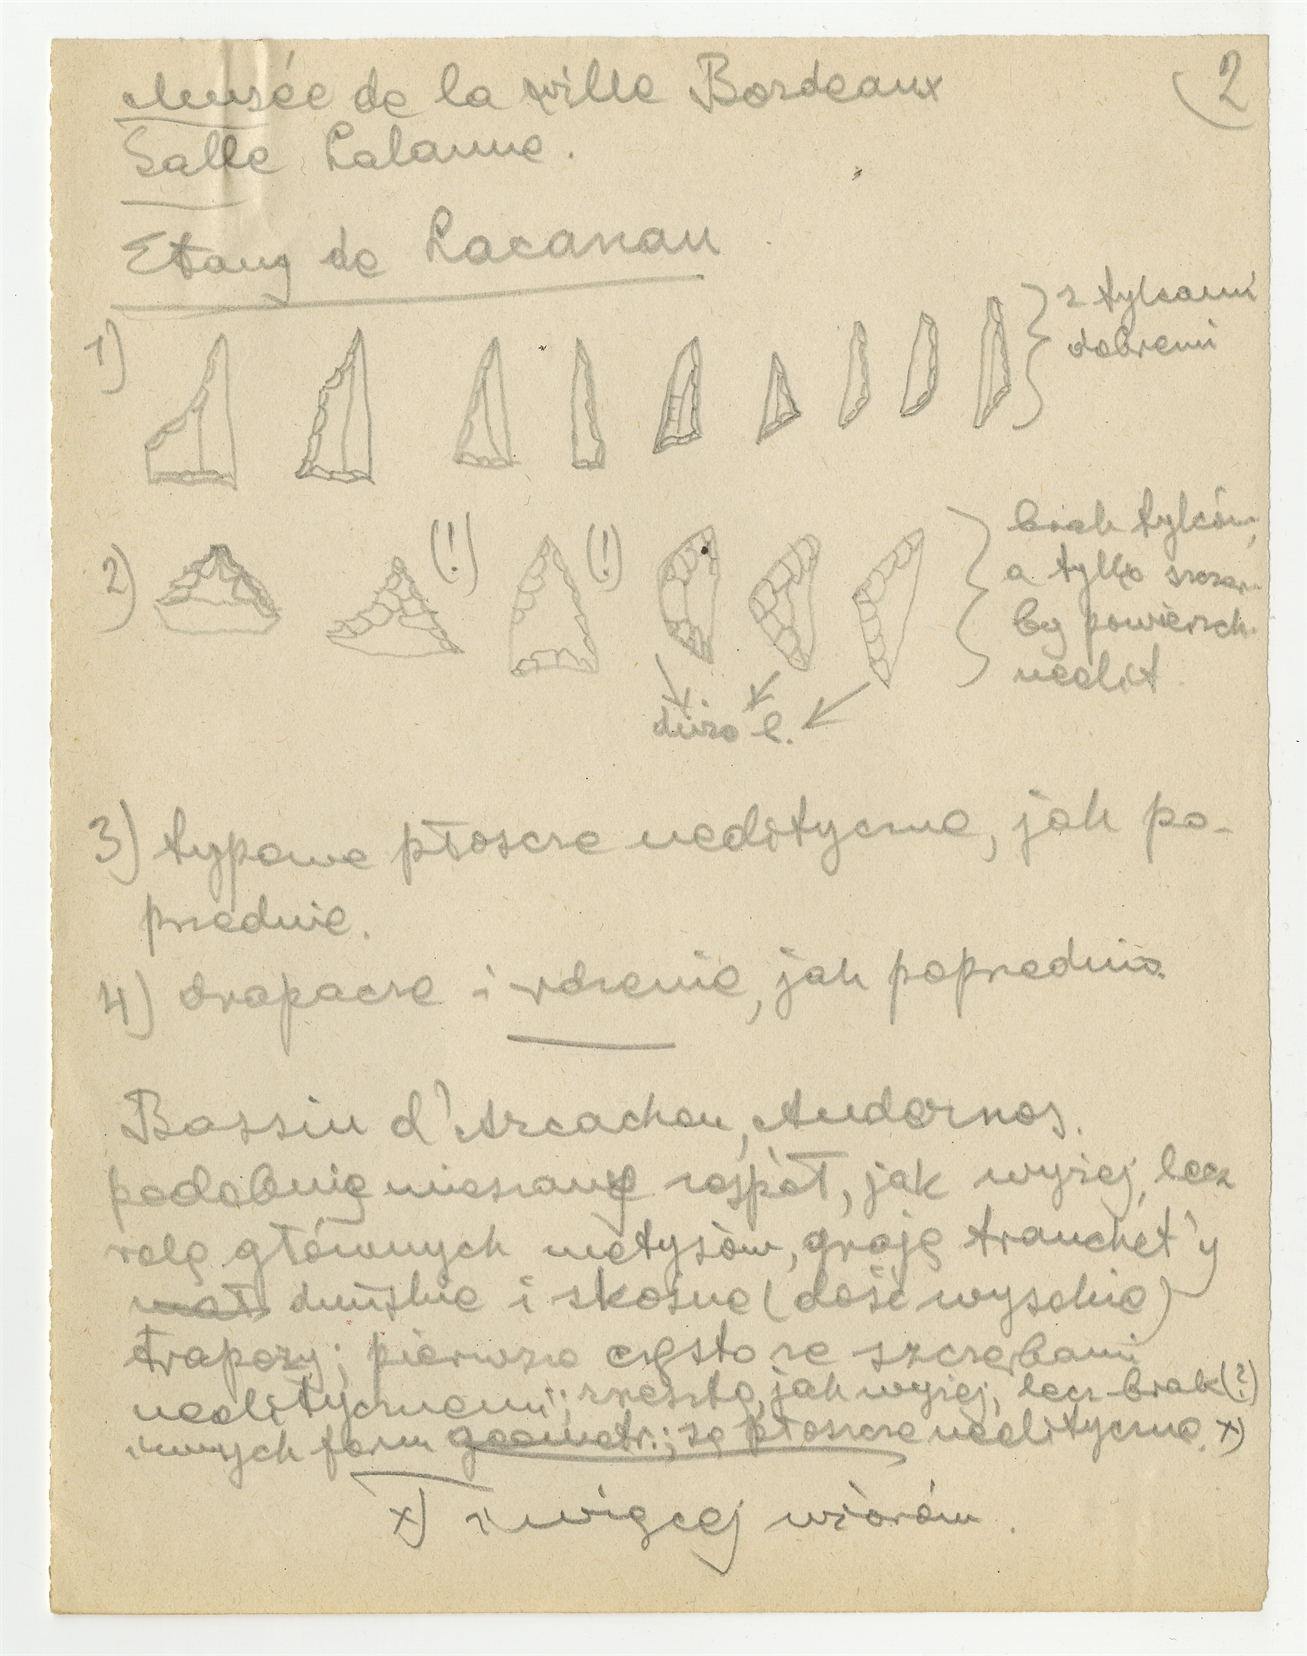 2
Musée de la ville Bordeaux
Salle Lalanne.
Etang de Lacanau
1)
z tylcami
dobremi
2)
(!)
(!)
brak tylców,
a tylko szczer-
by powierzch.
neolit.
dużo e.
3) typowe płoszcze neolityczne, jak po-
przednie.
4) drapacze i rdzenie, jak poprzednio.
Bassin d'Arcachon, Andernos.
podobnie mieszany zespół, jak wyżej, lecz
rolę głównych metysów, grają tranchet'y
duńskie i skośne (dość wysokie)
trapezy; pierwsze często ze szczerbami
neolitycznemi; zresztą, jak wyżej, lecz brak (?)
innych form geometr.; są płoszcze neolityczne. x)
x) i więcej wiórów.